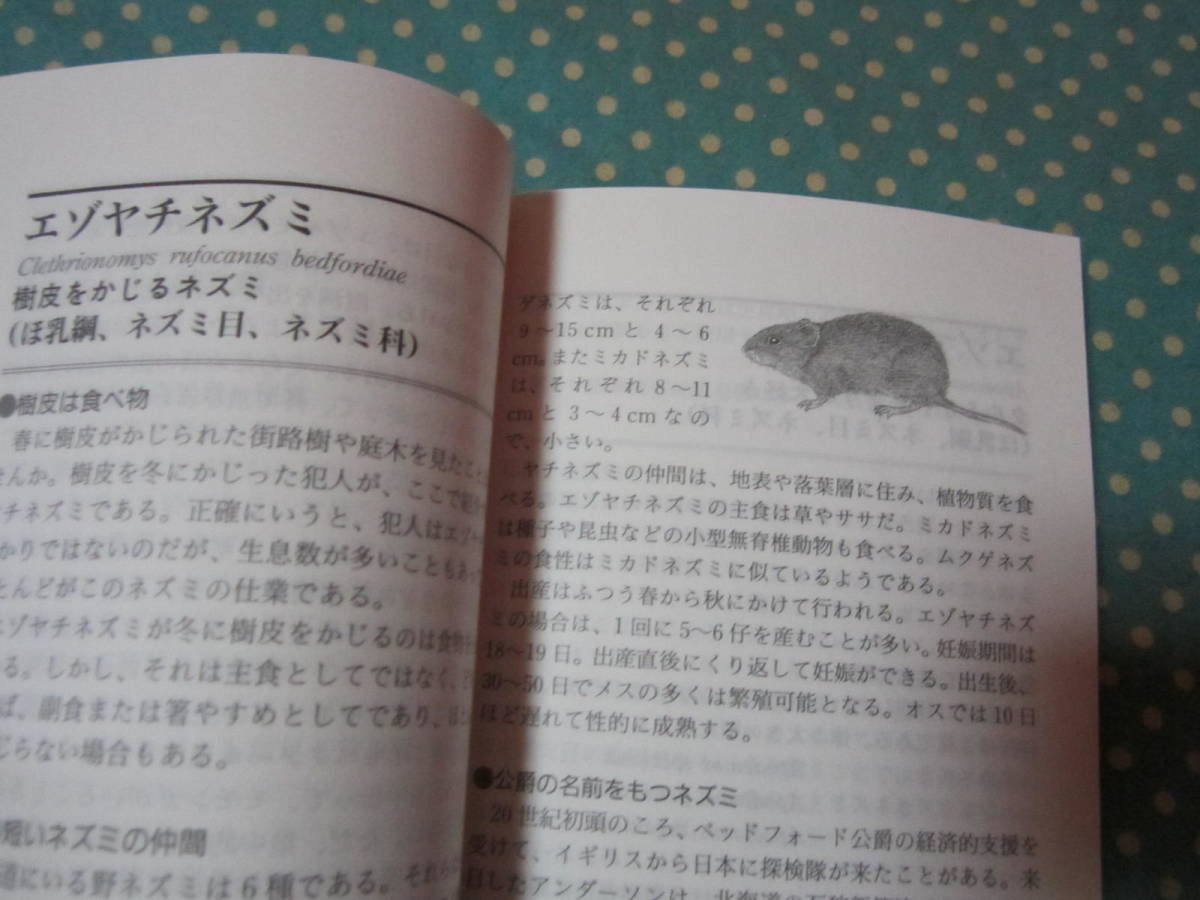 エゾヤチネズミ
Clethrionomys rufocanus bedfordiae
樹皮をかじるネズミ
(ほ乳綱、ネズミ目、ネズミ科)
●樹皮は食べ物
春に樹皮がかじられた街路樹や庭木を見たこと
せんか。樹皮を冬にかじった犯人が、ここで紹
チネズミである。正確にいうと、犯人はエゾ
かりではないのだが、生息数が多いこともあっ
とんどがこのネズミの仕業である。
エゾヤチネズミが冬に樹皮をかじるのは食物
る。しかし、それは主食としてではなく、
ば、副食または箸やすめとしてであり、
じらない場合もある。
短いネズミの仲間
道にいる野ネズミは6種である。それ
ダネズミは、それぞれ
9～15cmと4～6
cm。またミカドネズミ
は、それぞれ8～11
cmと3～4cmなの
で、小さい。
ヤチネズミの仲間は、地表や落葉層に住み、植物質を食
べる。エゾヤチネズミの主食は草やササだ。ミカドネズミ
は種子や昆虫などの小型無脊椎動物も食べる。ムクゲネズ
ミの食性はミカドネズミに似ているようである。
出産はふつう春から秋にかけて行われる。エゾヤチネズ
ミの場合は、1回に5～6仔を産むことが多い。妊娠期間は
18～19日。出産直後にくり返して妊娠ができる。出生後、
30～50日でメスの多くは繁殖可能となる。オスでは10日
ほど遅れて性的に成熟する。
●公爵の名前をもつネズミ
20世紀初頭のころ、ベッドフォード公爵の経済的支援を
受けて、イギリスから日本に探検隊が来たことがある。来
日したアンダーソンは、北海道の